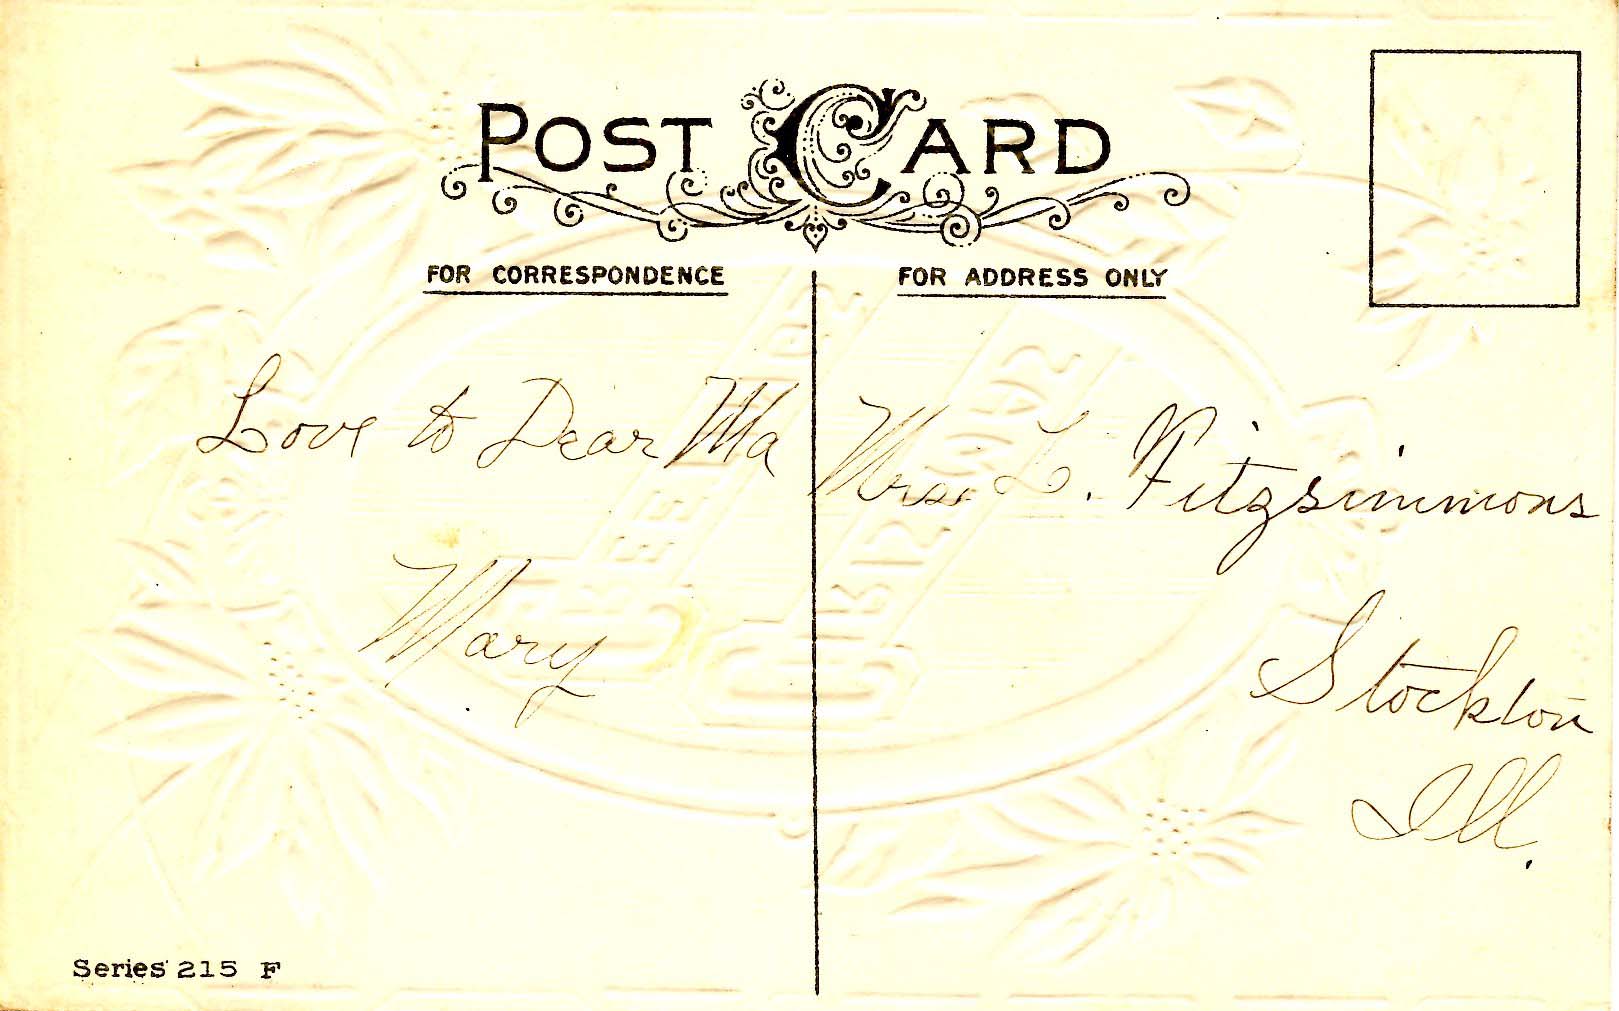 POST CARD
FOR CORRESPONDENCE
FOR ADDRESS ONLY
Love to Dear Ma
Mary
Mrs. L. Fitzsimmons
Stockton
Ill.
Series 215 F